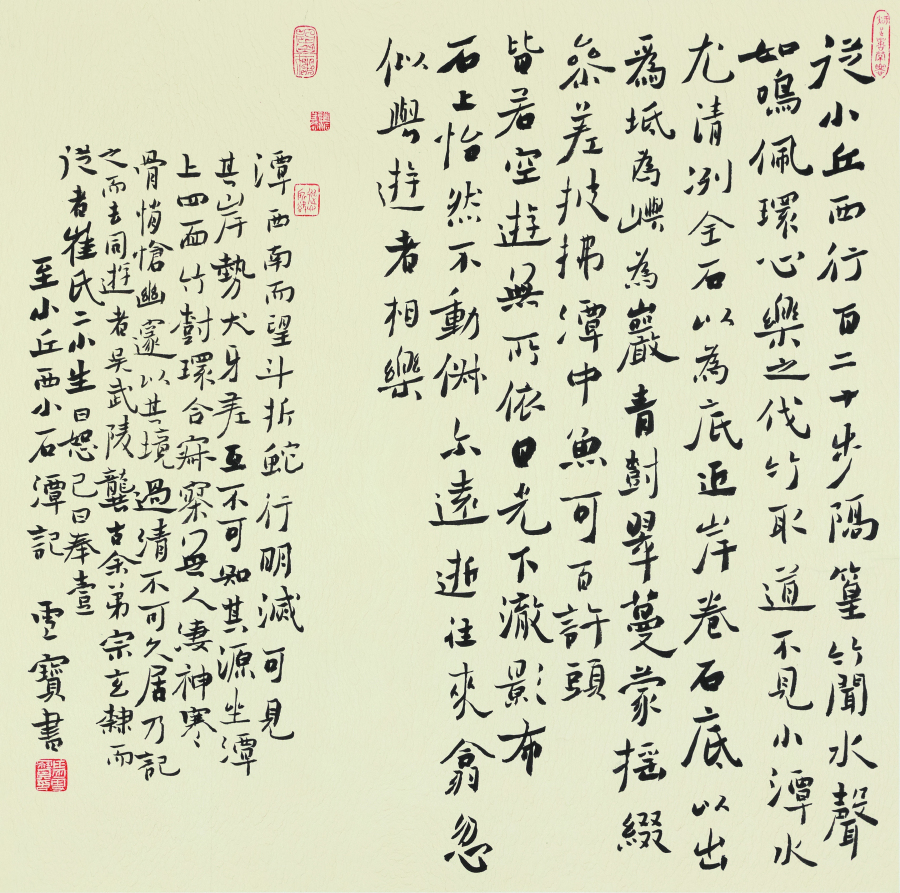 從小丘西行百二十步隔篁竹聞水聲
如鳴佩環心樂之伐竹取道不見小潭水
尤清冽全石以為底近岸卷石底以出
爲坻為嶼為巖青樹翠蔓蒙搖綴
參差披拂潭中魚可百許頭
皆若空遊無所依日光下澈影布
石上怡然不動俶尓遠逝往來翕忽
似與遊者相樂
潭西南而望斗折蛇行明滅可見
其岸勢犬牙差互不可知其源坐潭
上四面竹樹環合寂寥無人凄神寒
骨悄愴幽邃以其境過清不可久居乃記
之而去同遊者吳武陵龔古余弟宗玄隸而
從者崔氏二小生曰恕己曰奉壹
至小丘西小石潭記 雲寶書